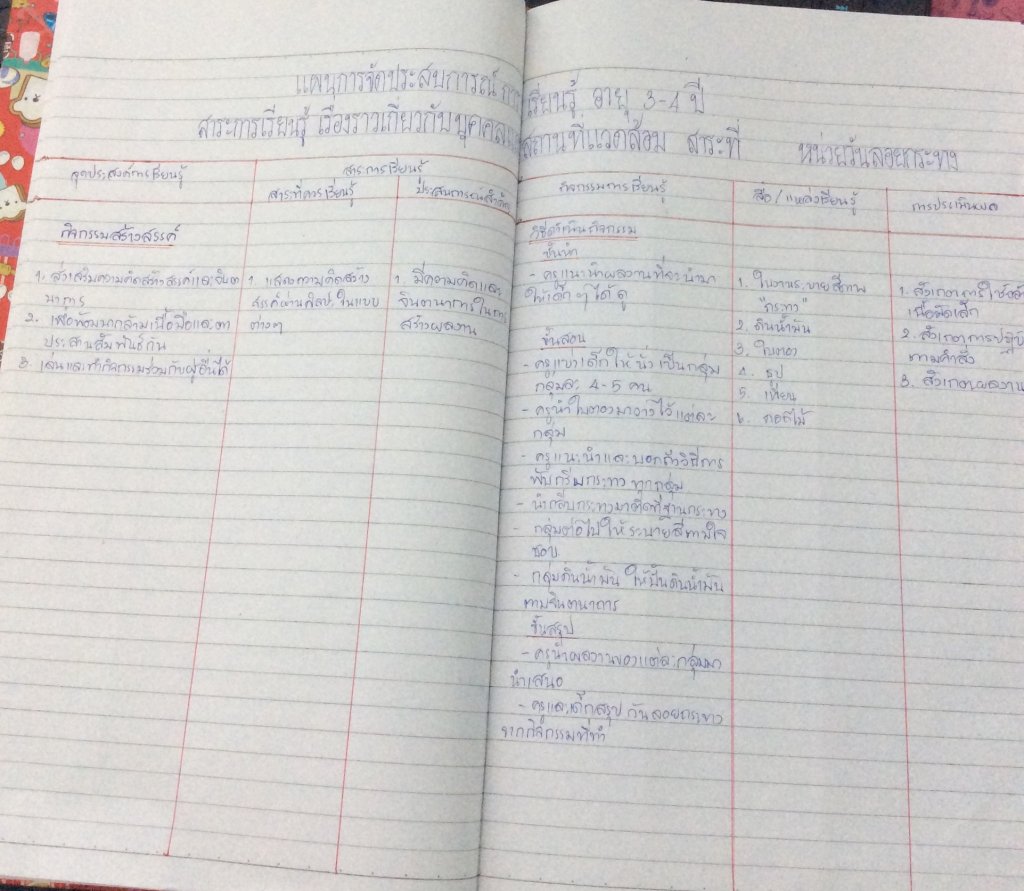 แผนการจัดประสบการณ์ การเรียนรู้ อายุ 3-4 ปี
สาระการเรียนรู้ เรื่องราวเกี่ยวกับบุคคลและสถานที่แวดล้อม สาระที่ หน่วยวันลอยกระทง
จุดประสงค์การเรียนรู้
สาระการเรียนรู้
สาระที่ควรเรียนรู้
ประสบการณ์สำคัญ
กิจกรรมการเรียนรู้
สื่อ/แหล่งเรียนรู้
การประเมินผล
กิจกรรมสร้างสรรค์
1. ส่งเสริมความคิดสร้างสรรค์และจินต
นาการ
2. เพื่อพัฒนากล้ามเนื้อมือและตา
ประสานสัมพันธ์กัน
3. เล่นและทำกิจกรรมร่วมกับผู้อื่นได้
1. แสดงความคิดสร้าง
สรรค์ผ่านศิลปะในแบบ
ต่างๆ
1. มีความคิดและ
จินตนาการในการ
สร้างผลงาน
วิธีดำเนินกิจกรรม
ขั้นนำ
- ครูแนะนำผลงานที่จะนำมา
ให้เด็กๆได้ดู
ขั้นสอน
- ครูแบ่งเด็กให้นั่งเป็นกลุ่ม
กลุ่มละ 4-5 คน
- ครูนำใบตองมาวางไว้แต่ละ
กลุ่ม
- ครูแนะนำและบอกถึงวิธีการ
พับกรีบกระทง ทุกกลุ่ม
- นำกรีบกระทงมาติดที่ฐานกระทง
- กลุ่มต่อไปให้ระบายสีตามใจ
ชอบ
- กลุ่มดินน้ำมัน ให้ปั้นดินน้ำมัน
ตามจินตนาการ
ขั้นสรุป
- ครูนำผลงานของแต่ละกลุ่มมา
นำเสนอ
- ครูและเด็กสรุป วันลอยกระทง
จากกิจกรรมที่ทำ
1. ใบงานระบายสีภาพ
"กระทง"
2. ดินน้ำมัน
3. ใบตอง
4. ธูป
5. เทียน
6. ดอกไม้
1. สังเกตการใช้กล้าม
เนื้อมัดเล็ก
2. สังเกตการปฏิบัติ
ตามคำสั่ง
3. สังเกตผลงาน